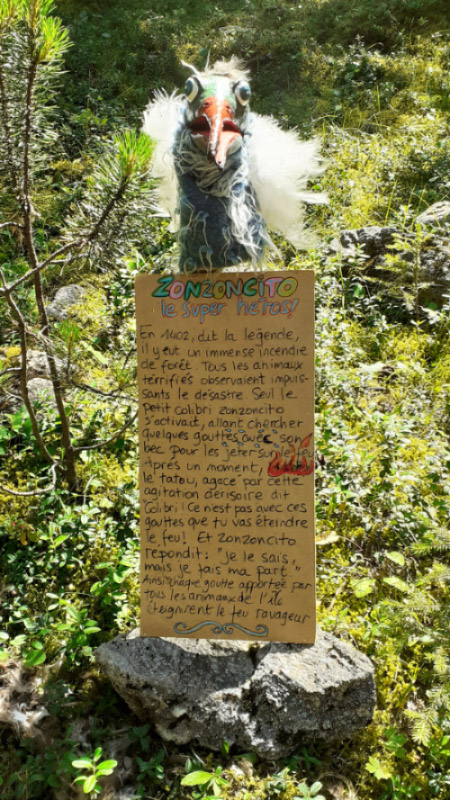 ZONZONCITO
le super héros!
En 1402, dit la légende,
il y eut un immense incendie
de forêt. Tous les animaux
terrifiés observaient impuis-
sants le désastre. Seul le
petit colibri zonzoncito
s'activait, allant chercher
quelques gouttes avec son
bec pour les jeter sur le feu
Après un moment,
le tatou, agacé par cette
agitation dérisoire dit
Colibri! Ce n'est pas avec ces
gouttes que tu vas éteindre
le feu! Et ZONZONCITO
répondit: "Je le sais,
mais je fais ma part."
Ainsi chaque goutte apportée par
tous les animaux de l'île
éteignirent le feu ravageur